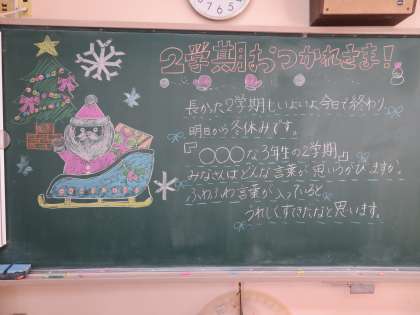 2学期おつかれさま!
長かった2学期も、いよいよ今日で終わり。
明日から冬休みです。
『〇〇〇な3年生の2学期』
みなさんはどんな言葉が思いつかびますか。
ふわふわ言葉が入っていると
うれしくすてきだなと思います。